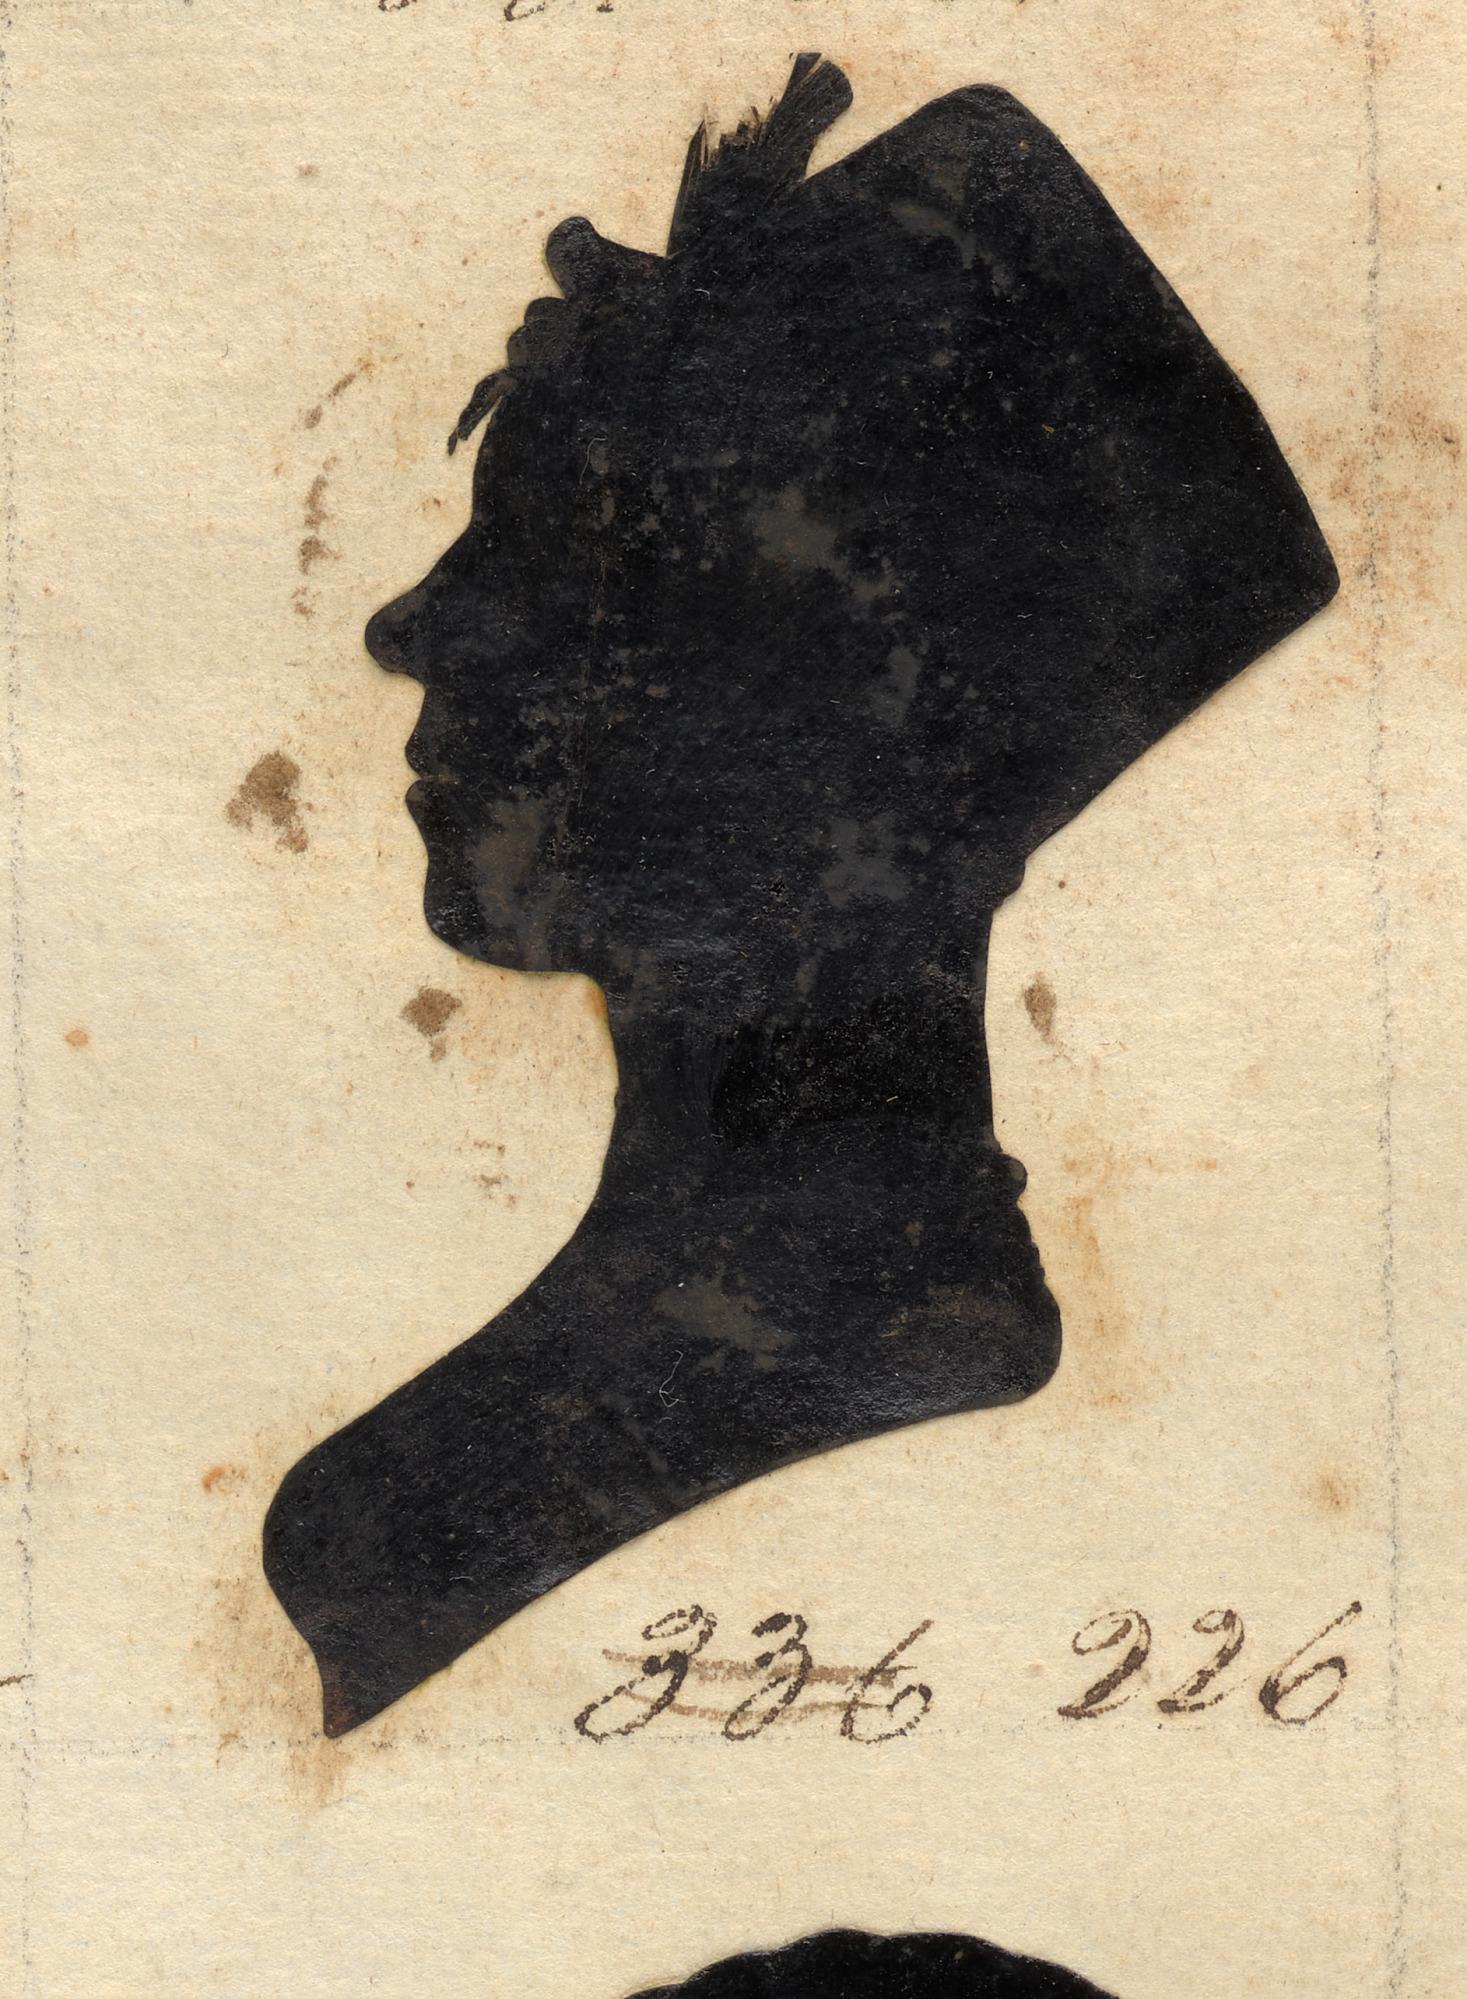 336 226